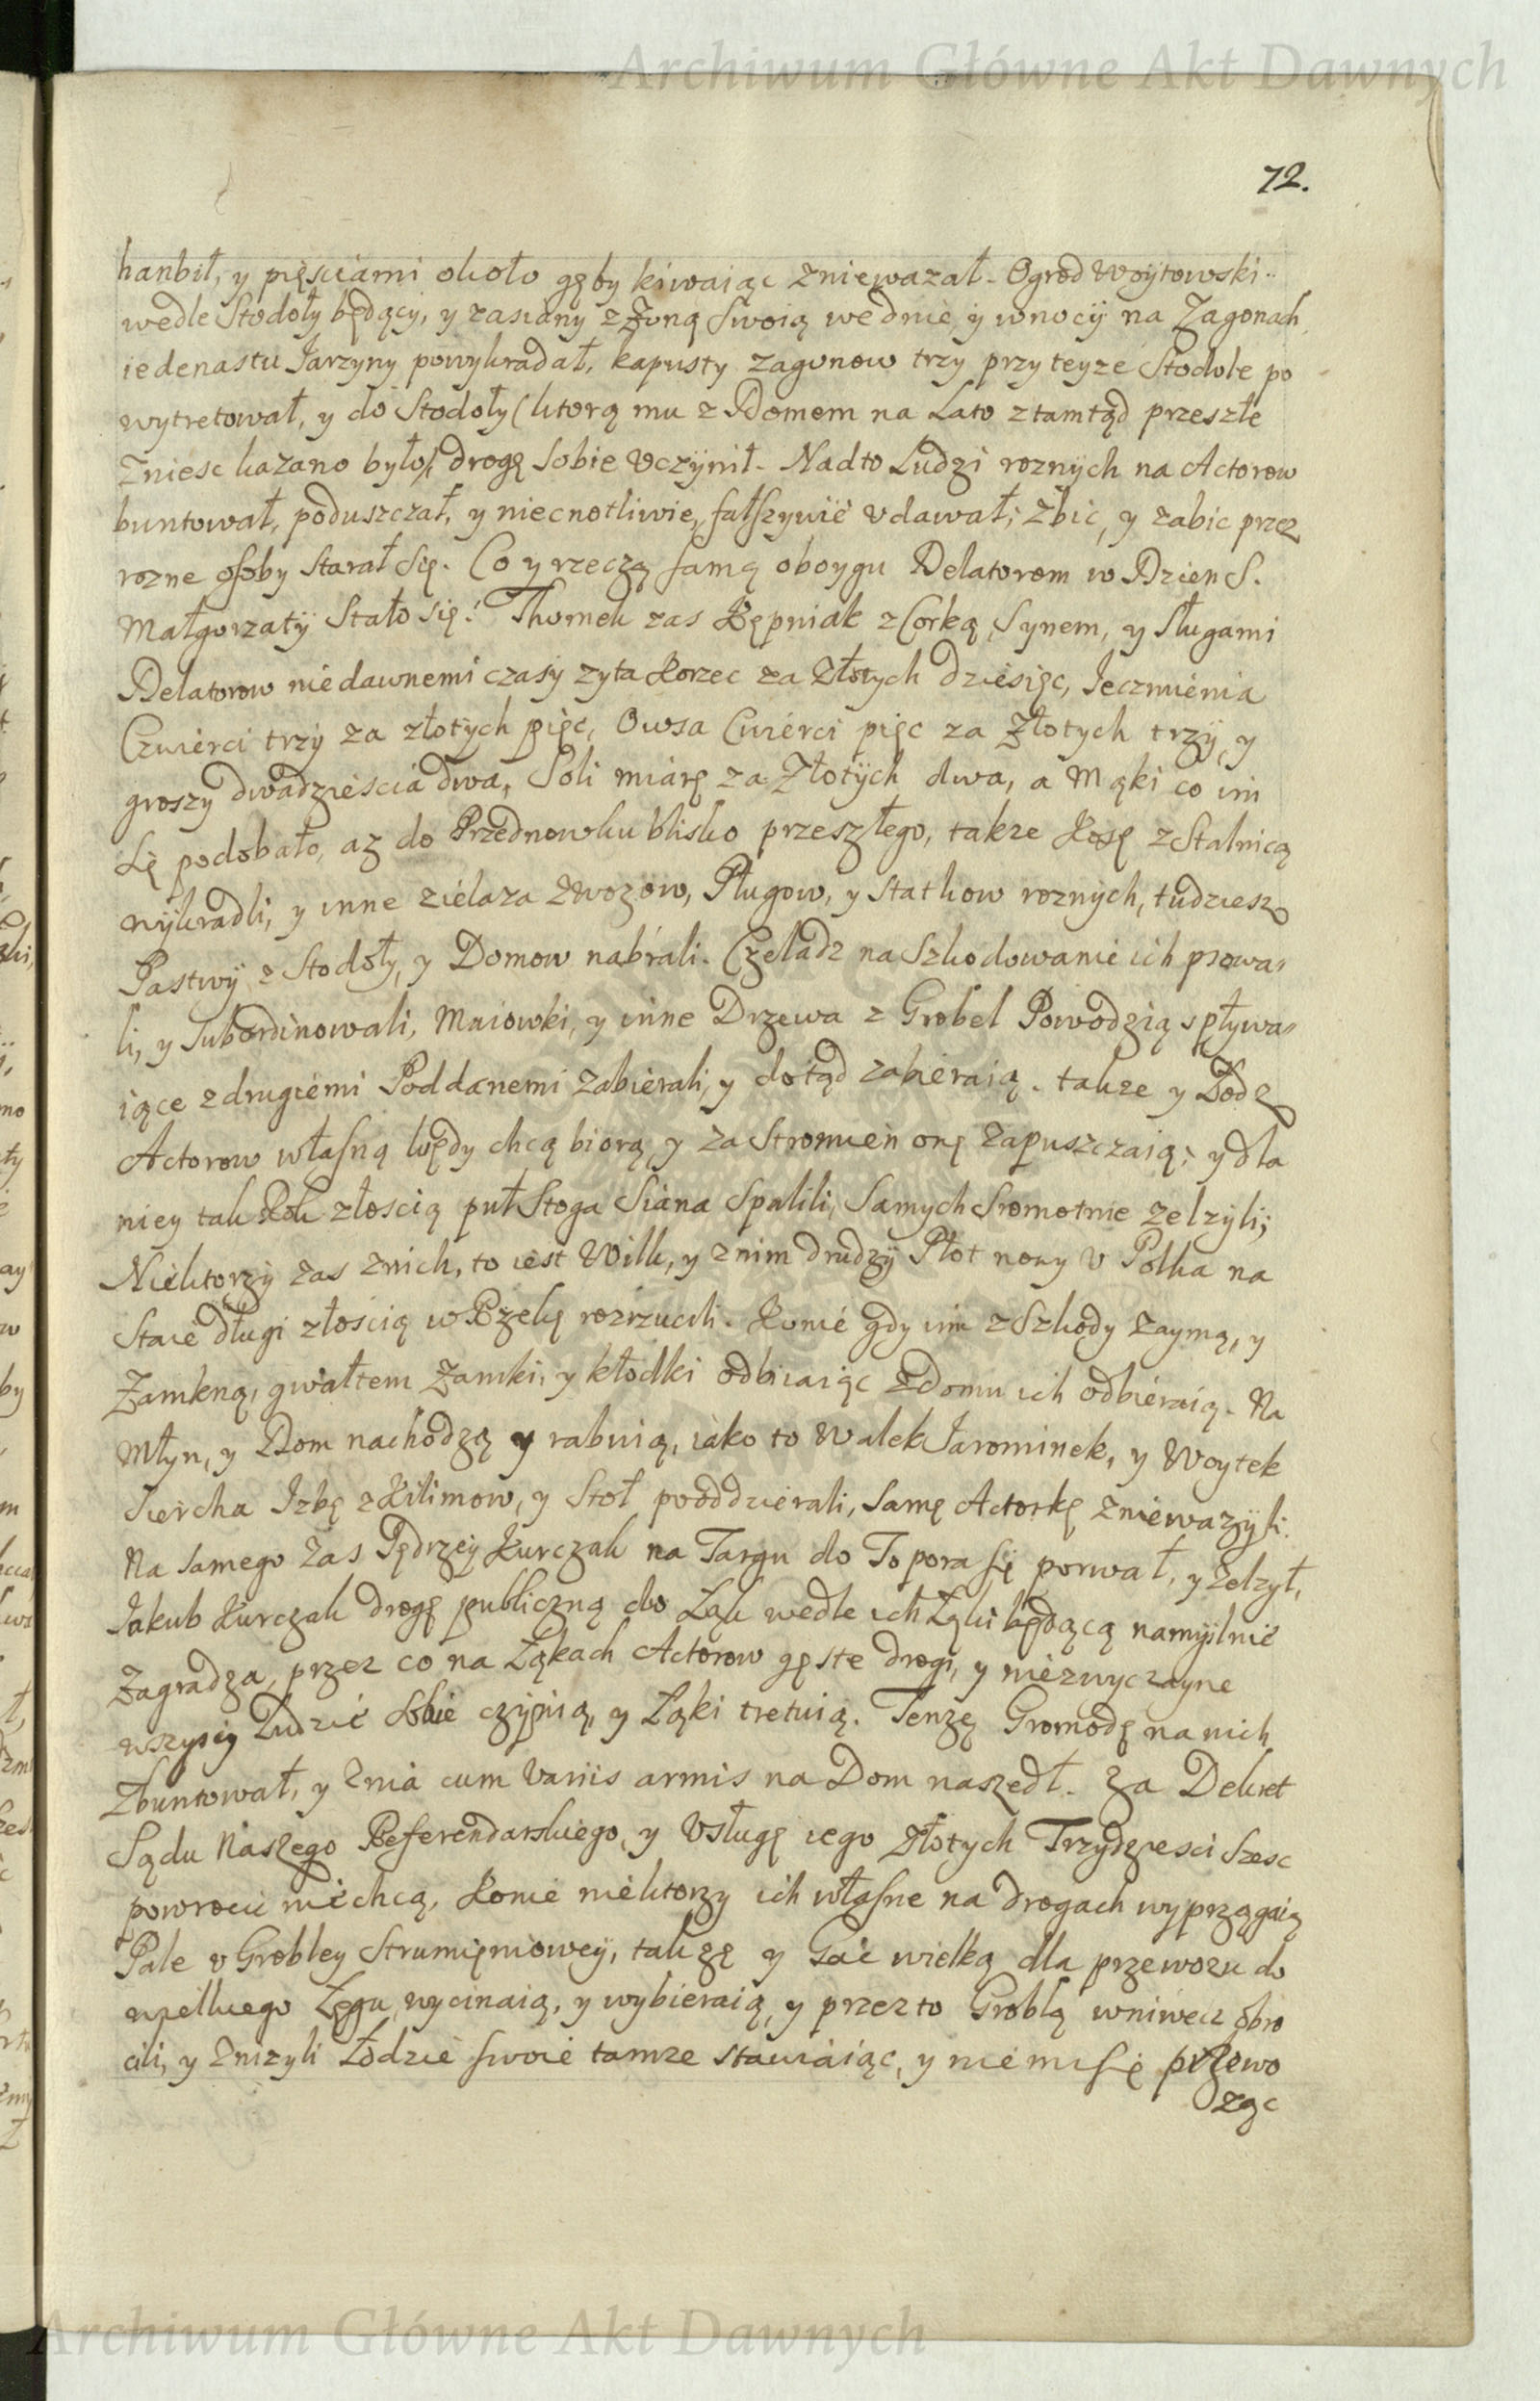 Archiwum Główne Akt Dawnych
72.
hanbił, y pięsciami około gęby kiwaiąc zniewazał. Ogrod Woytowski
wedle Stodoły będący, y zasiany z Zoną swoią we dnie, y wnocy na Zagonach
iedenastu Jarzyny powykradał, kapusty zagonow trzy przy teyze Stodole po
wytretował, y do Stodoły (ktorą mu z Domem na Lato ztamtąd przeszłe
Zniesc kazano było) drogę sobie Vczynił. Nadto Ludzi roznych na Actorow
buntował, poduszczał, y niecnotliwie, fałszywie vdawał; zbic, y zabic przez
rozne osoby starał się. Co y rzeczą samą oboygu Delatorom w Dzien S.
Małgorzaty Stało się. Thomek zas Kępniak z Corką, Synem, y Sługami
Delatorow niedawnemi czasy zyta Korzec za Złotych dziesięc, Jeczmienia
Czwierci trzy za złotych pięc, Owsa Cwierci pięc za Złotych trzy, y
groszy dwadziescia dwa, Soli miarę za Złotych dwa, a Mąki co im
się podobało, az do Przednowku blisko przeszłego, takze Kosę z Stalnicą
wykradli, y inne zielaza z wozow, Pługow, y statkow roznych, tudziesz
Pastwy z Stodoły, y Domow nabrali. Czeladz na Szkodowanie ich psowa-
li, y subordinowali, Maiowki, y inne Drzewa z Grobel Powodzią spływa-
iące z drugiemi Poddanemi zabierali, y dotąd zabieraią. takze y Łodz
Actorow własną kędy chcą biorą, y za Stromien onę zapuszczaią; y dla
niey tak Rok złoscią puł Stoga Siana Spalili, Samych Sromotnie zelzyli;
Niektorzy zas z nich, to iest Wilk, y z nim drudzy Płot nowy v Polka na
Staie długi złoscią w Rzekę rozrzucili. Konie gdy im z Szkody zaymą, y
Zamkną, gwałtem Zamki, y kłodki odbiiaiąc z Domu ich odbieraią. Na
Młyn, y Dom nachodzą y rabuią, iako to Walek Jarominek, y Woytek
Siercha Izbę z Kilimow, y Stoł pooddzierali, samę Actorkę zniewazyli.
Na samego zas Jędrzey Kurczak na Targu do Topora się porwał, y zelzył,
Jakub Kurczak drogę publiczną do Łąk wedle ich Łąki będącą namyslnie
Zagradza, przez co na Łąkach Actorow gęste drogi, y niezwyczayne
wszyscy Ludzie sobie czynią, y Łąki tretuią. Tenzę Gromodę na nich
Zbuntował, y z nia cum variis armis na Dom naszedł. Za Dekret
Sądu Naszego Referendarskiego, y Vsługę iego Złotych Trzydziesci szesc
powrocic niechcą, Konie niektorzy ich własne na drogach wyprzągaią
Pale v Grobley Strumięniowey, takzę y Gac wielką dla przewozu do
wielkiego Łęgu wycinaią, y wybieraią, y przez to Groblą wniwecz obro
cili, y znizyli Łodzie swoie tamze stawiaiąc, y niemi się przewo
ząc
Archiwum Główne Akt Dawnych